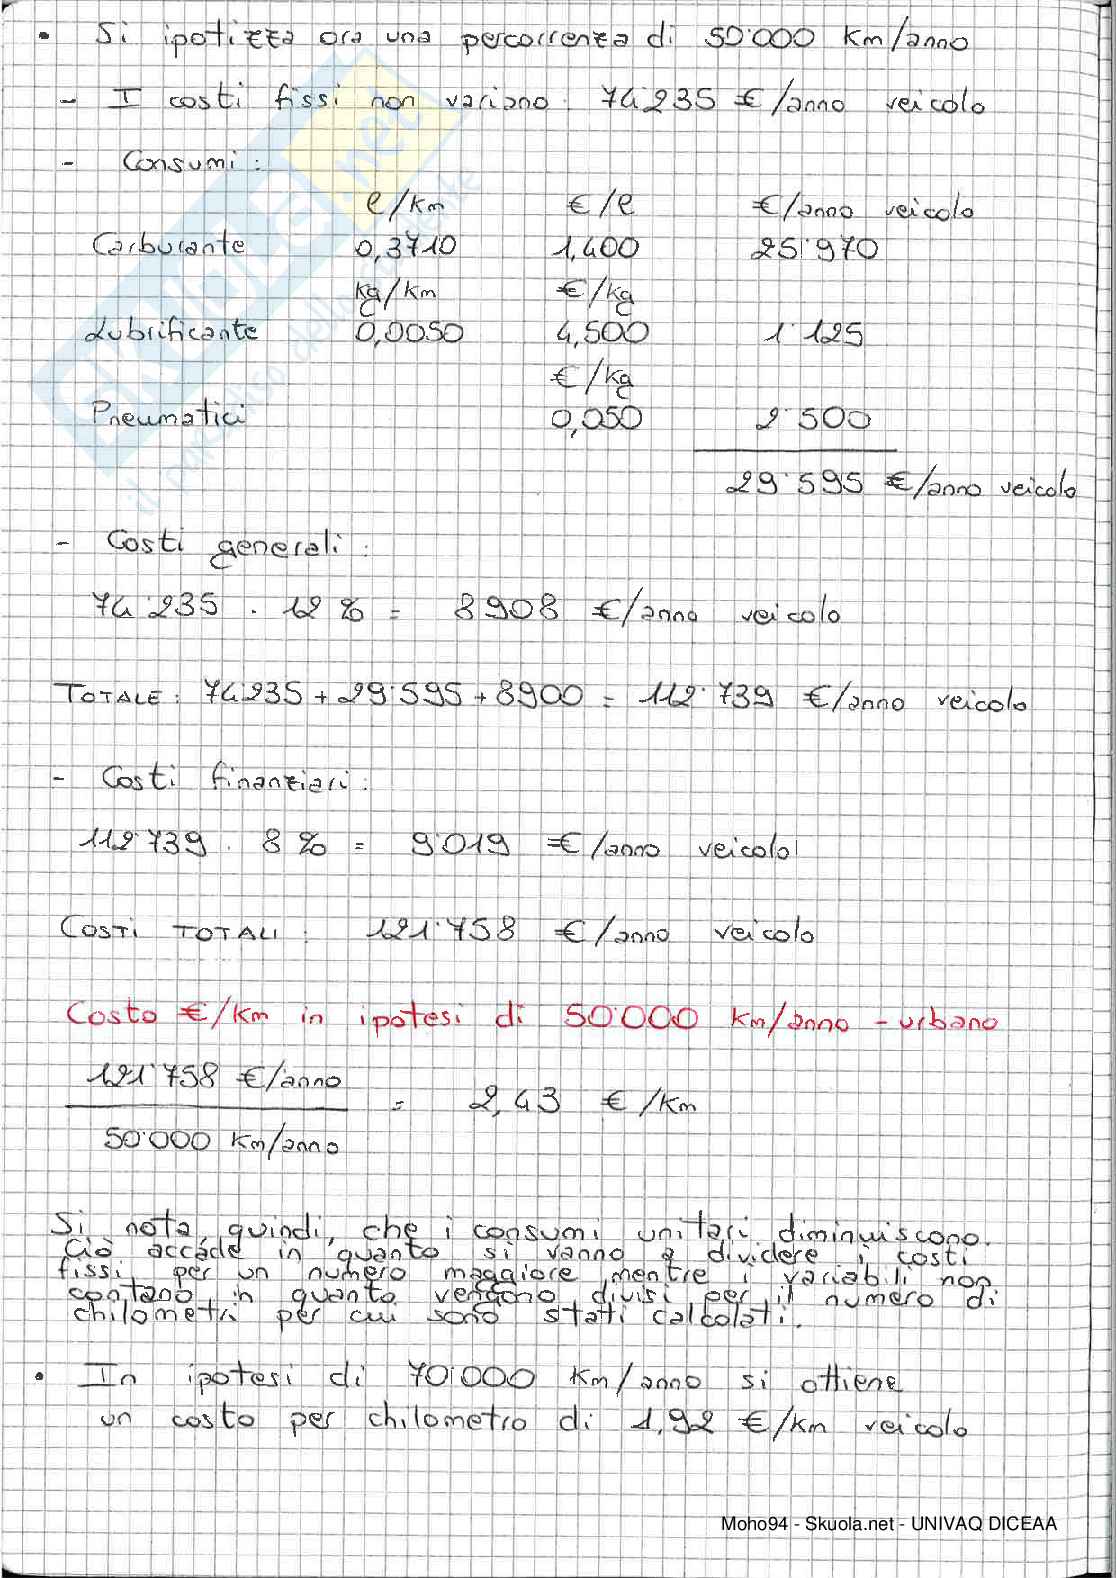 • Si ipotizza ora una percorrenza di 50'000 Km/anno
- I costi fissi non variano: 74'235 €/anno veicolo
- Consumi:
l/Km €/l €/anno veicolo
Carburante 0,3710 1,400 25'970
kg/km €/kg
Lubrificante 0,0050 4,500 1'125
€/kg
Pneumatici 0,050 2'500
29'595 €/anno veicolo
- Costi generali:
74'235 . 12% = 8908 €/anno veicolo
TOTALE: 74'235 + 29'595 + 8900 = 112'739 €/anno veicolo
- Costi finanziari:
112'739 . 8% = 9'019 €/anno veicolo
COSTI TOTALI: 121'758 €/anno veicolo
Costo €/Km in ipotesi di 50'000 Km/anno - urbano
121'758 €/anno
= 2,43 €/Km
50'000 Km/anno
Si nota, quindi, che i consumi unitari diminuiscono.
Ciò accade in quanto si vanno a dividere i costi
fissi per un numero maggiore mentre i variabili non
contano in quanto vengono divisi per il numero di
chilometri per cui sono stati calcolati.
• In ipotesi di 70'000 Km/anno si ottiene
un costo per chilometro di 1,92 €/Km veicolo
Moho94 - Skuola.net - UNIVAQ DICEAA
SKUOLA.net
il paradiso dello studente